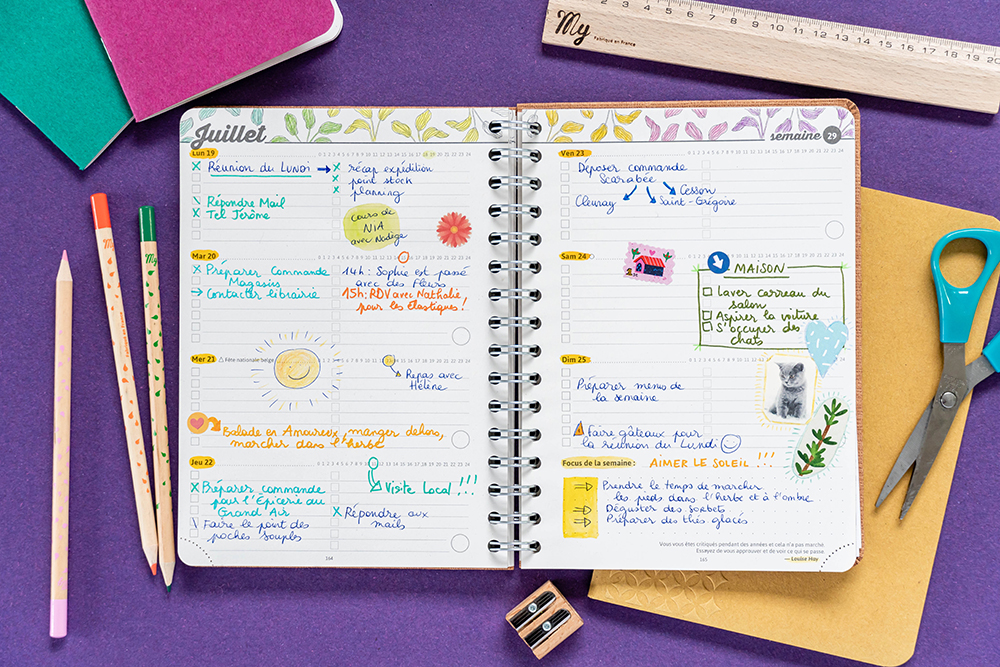 My
Fabrique en France
0 1 2 3 4 5 6 7 8 9 10 11 12 13 14 15 16 17 18 19 20
Juillet
Lun 19
Réunion du LUNDI → récap expédition
point stock
planning
Répondre Mail
Tel Jérôme
cours de
NIA
avec Nadège
Mar 20
Préparer Commande
Magasins
→ Contacter librairie
14h : Sophie est passé
avec des Fleurs
15h : RDV avec Nathalie
pour les Élastiques !
Mer 23
Fête nationale belge
Repas avec
Hélène
Balade en Amoureux, manger dehors,
marcher dans l'herbe
Jeu 22
Préparer commande
pour l'Épicerie du
Grand Air
Faire le point des
poches souples
Visite Local !!!
Répondre aux
mails
164
semaine 29
Ven 23
Déposer commande
Scarabée
Cleunay
Saint-Grégoire
Cesson
Sam 24
MAISON
Laver carreau du
salon
Aspirer la voiture
S'occuper des
chats
Dim 25
Préparer menus de
la semaine
Faire gâteaux pour
la réunion du Lundi
Focus de la semaine : AIMER LE SOLEIL !!!
Prendre le temps de marcher
les pieds dans l'herbe et à l'ombre
Déguster des sorbets
Préparer des thés glacés
Vous vous êtes critiqués pendant des années et cela n'a pas marché.
Essayez de vous approuver et de voir ce qui se passe.
— Louise Hay
165
My
My